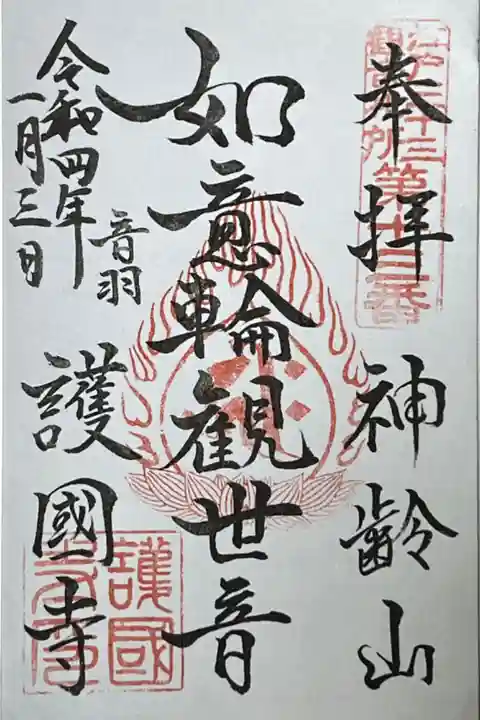 奉拝
神齢山
江戸三十三
観音札所第十三番
如意輪観世音
令和四年
一月三日
音羽
護国寺
護國